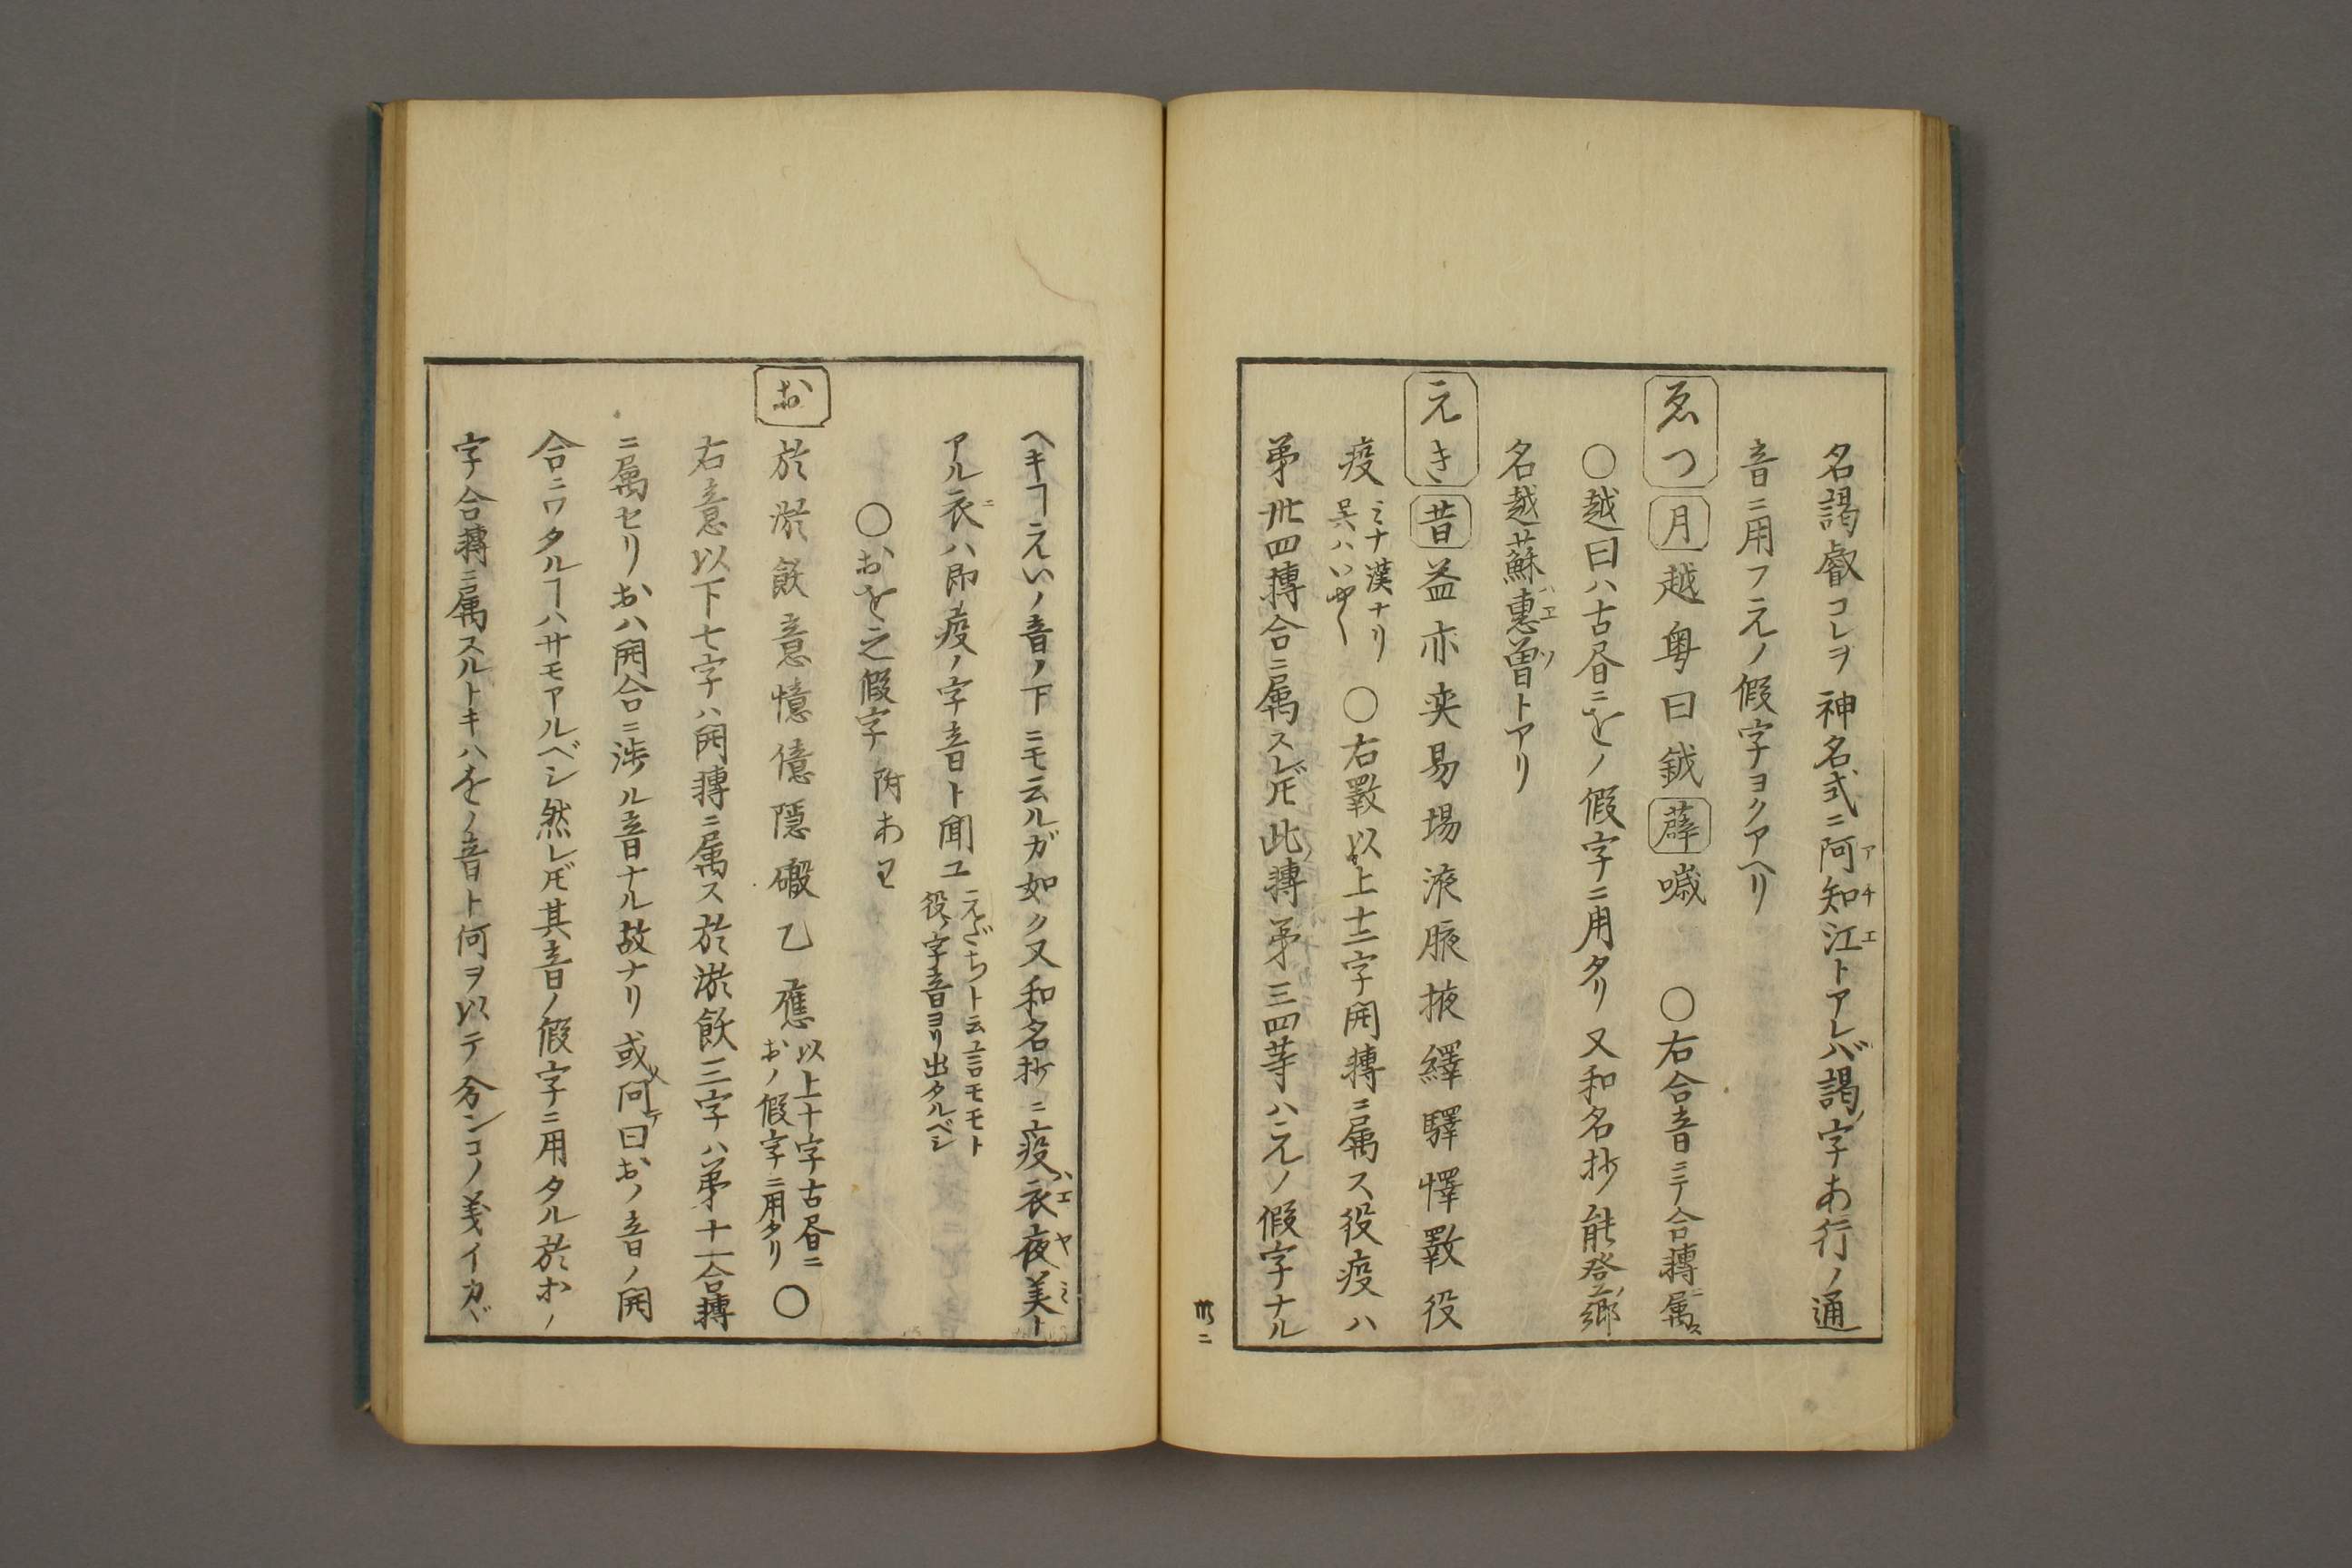 名謁叡コレヲ神名式ニ阿知江トアレバ謁ノ字あ行ノ通
アチエ
音ニ用フえノ假字ヨクアヘリ
ゑつ 月 越粤曰鉞 薛 噦 ○右合音ニテ合轉ニ属ス
○越曰ハ古昼ニをノ假字ニ用タリ又和名抄ノ能登ノ郷
名越蘇惠曽トアリ
ハエソ
えき 昔 益亦奕易埸液腋掖繹驛懌斁役
疫 ミナ漢ナリ
呉ハいやく
○右斁以上十二字開轉ニ属ス役疫ハ
第卅四轉合ニ属スレ𪜈此ノ轉ノ第三四等ハえノ假字ナル
卌二
ヘキヿえいノ音ノ下ニモ云ルガ如ク又和名抄ニ疫衣夜美ト
ハエヤミ
アルニ衣ハ即疫ノ字音ト聞ユ
えだちト云言モモト
役ノ字音ヨリ出タルベシ
○おを之假字 附あわ
お 於淤飫意憶億隠磤乙應
以上十字古昼ニ
おノ假字ニ用タリ
○
右意以下七字ハ開轉ニ属ス於淤飫三字ハ第十一合轉
ニ属セリおハ開合ニ渉ル音ナル故ナリ或人問テ曰おノ音ノ開
合ニワタルヿハサモアルベシ然レ𪜈其音ノ假字ニ用タル於オノ
字ノ合轉ニ属スルトキハをノ音ト何ヲ以テ分ンコノ義イカバ